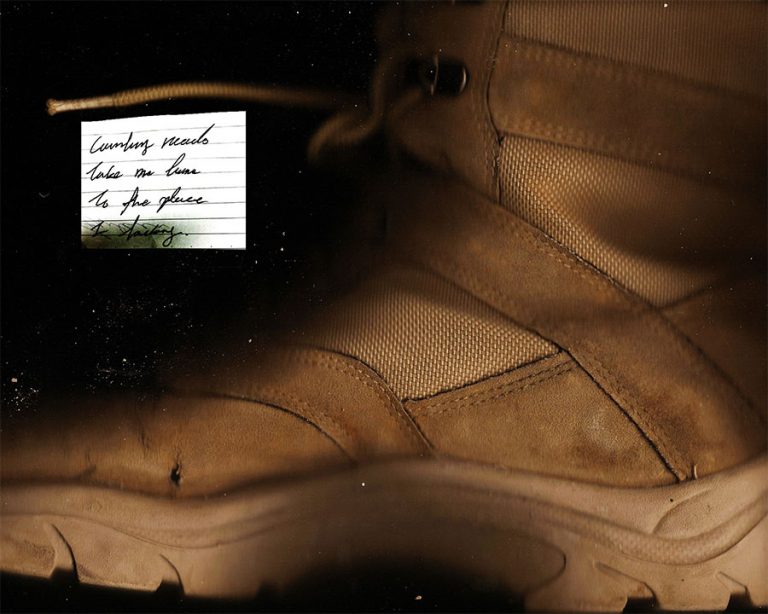 Country roads
take me home
to the place
I belong.